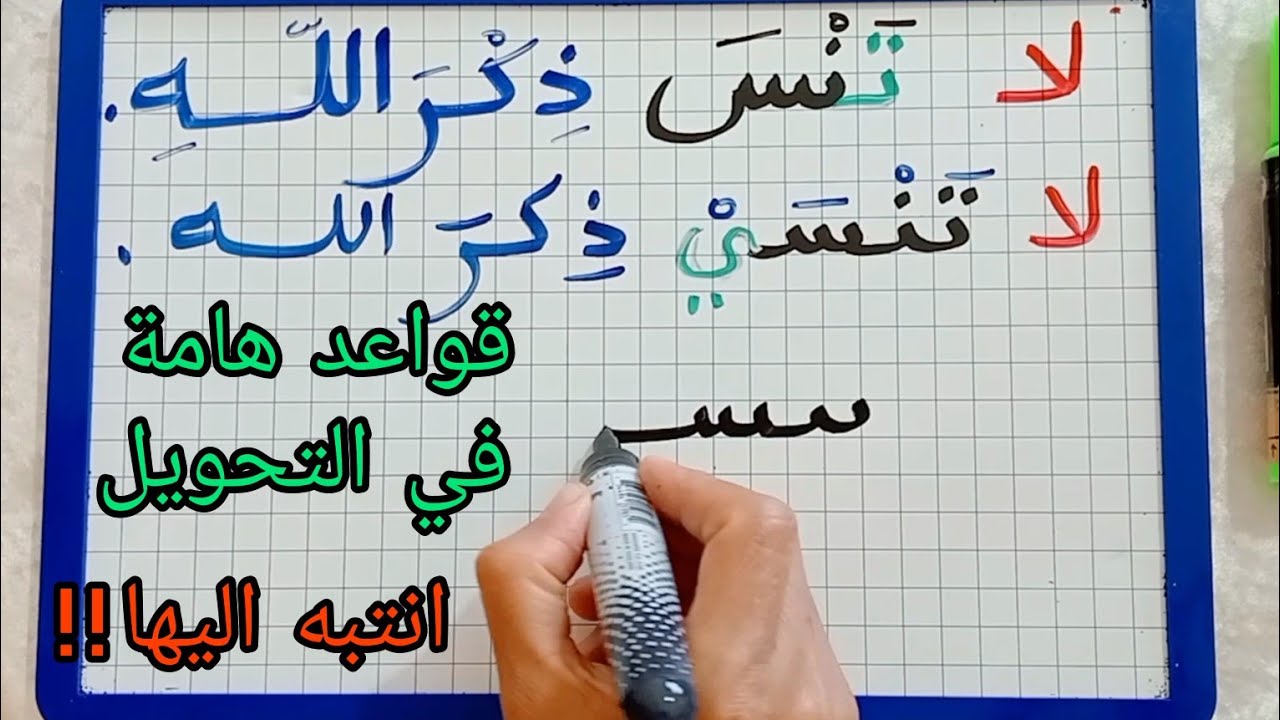 لا تَنْسَ ذِكْرَ اللّهِ.
لا تَنْسَيْ ذِكرَ الله.
قواعد هامة
في التحويل
انتبه اليها!!